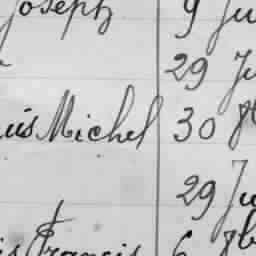 Joseph 9 Ju
29 Ju
uis Michel 30
29 Ju
is Francis 6